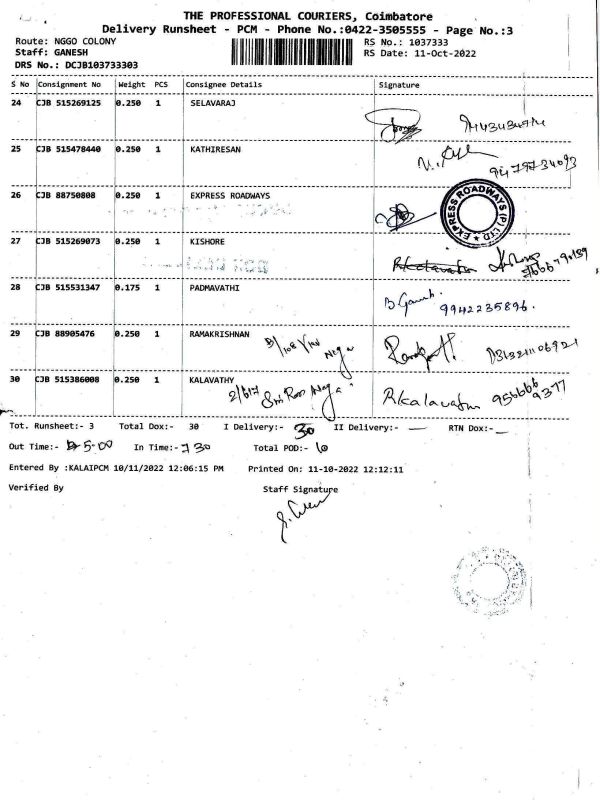 THE PROFESSIONAL COURIERS, Coimbatore
Delivery Runsheet - PCM - Phone No.:0422-3505555 - Page No.:3
Route: NGGO COLONY RS No.: 1037333
Staff: GANESH RS Date: 11-Oct-2022
DRS No.: DCJB103733303
S No Consignment No Weight PCS Consignee Details Signature
24 CJB 515269125 0.250 1 SELAVARAJ
25 CJB 515478440 0.250 1 KATHIRESAN
9479734093
26 CJB 88750808 0.250 1 EXPRESS ROADWAYS
EXPRESS ROADWAYS (P) LTD
27 CJB 515269073 0.250 1 KISHORE
28 CJB 515531347 0.175 1 PADMAVATHI
9942235896.
29 CJB 88905476 0.250 1 RAMAKRISHNAN
30 CJB 515386008 0.250 1 KALAVATHY
2/617 R.Kalavathy
Tot. Runsheet:- 3 Total Dox:- 30 I Delivery:- 30 II Delivery:- — RTN Dox:- —
Out Time:- 5-00 In Time:- 7 30 Total POD:- 10
Entered By :KALAIPCM 10/11/2022 12:06:15 PM Printed On: 11-10-2022 12:12:11
Verified By Staff Signature